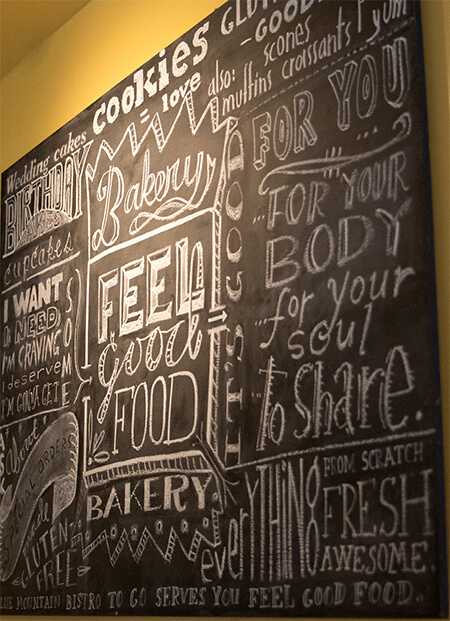 GLUT
-GOOD
Wedding cakes
cookies
= love
also: scones
muffins croissants & yum
BIRTHDAY
cupcakes
Bakery
IT'S GOOD
FOR YOU
...FOR YOUR
BODY
...for your
soul
to share.
I WANT
I NEED SOME
I'M CRAVING
I deserve
I'M GONNA GET
FEEL
good
FOOD
BAKERY
about
SPECIAL ORDERS
GLUTEN-
FREE
everYTHING
FROM SCRATCH
FRESH
AWESOME.
BLUE MOUNTAIN BISTRO TO GO SERVES YOU FEEL GOOD FOOD..